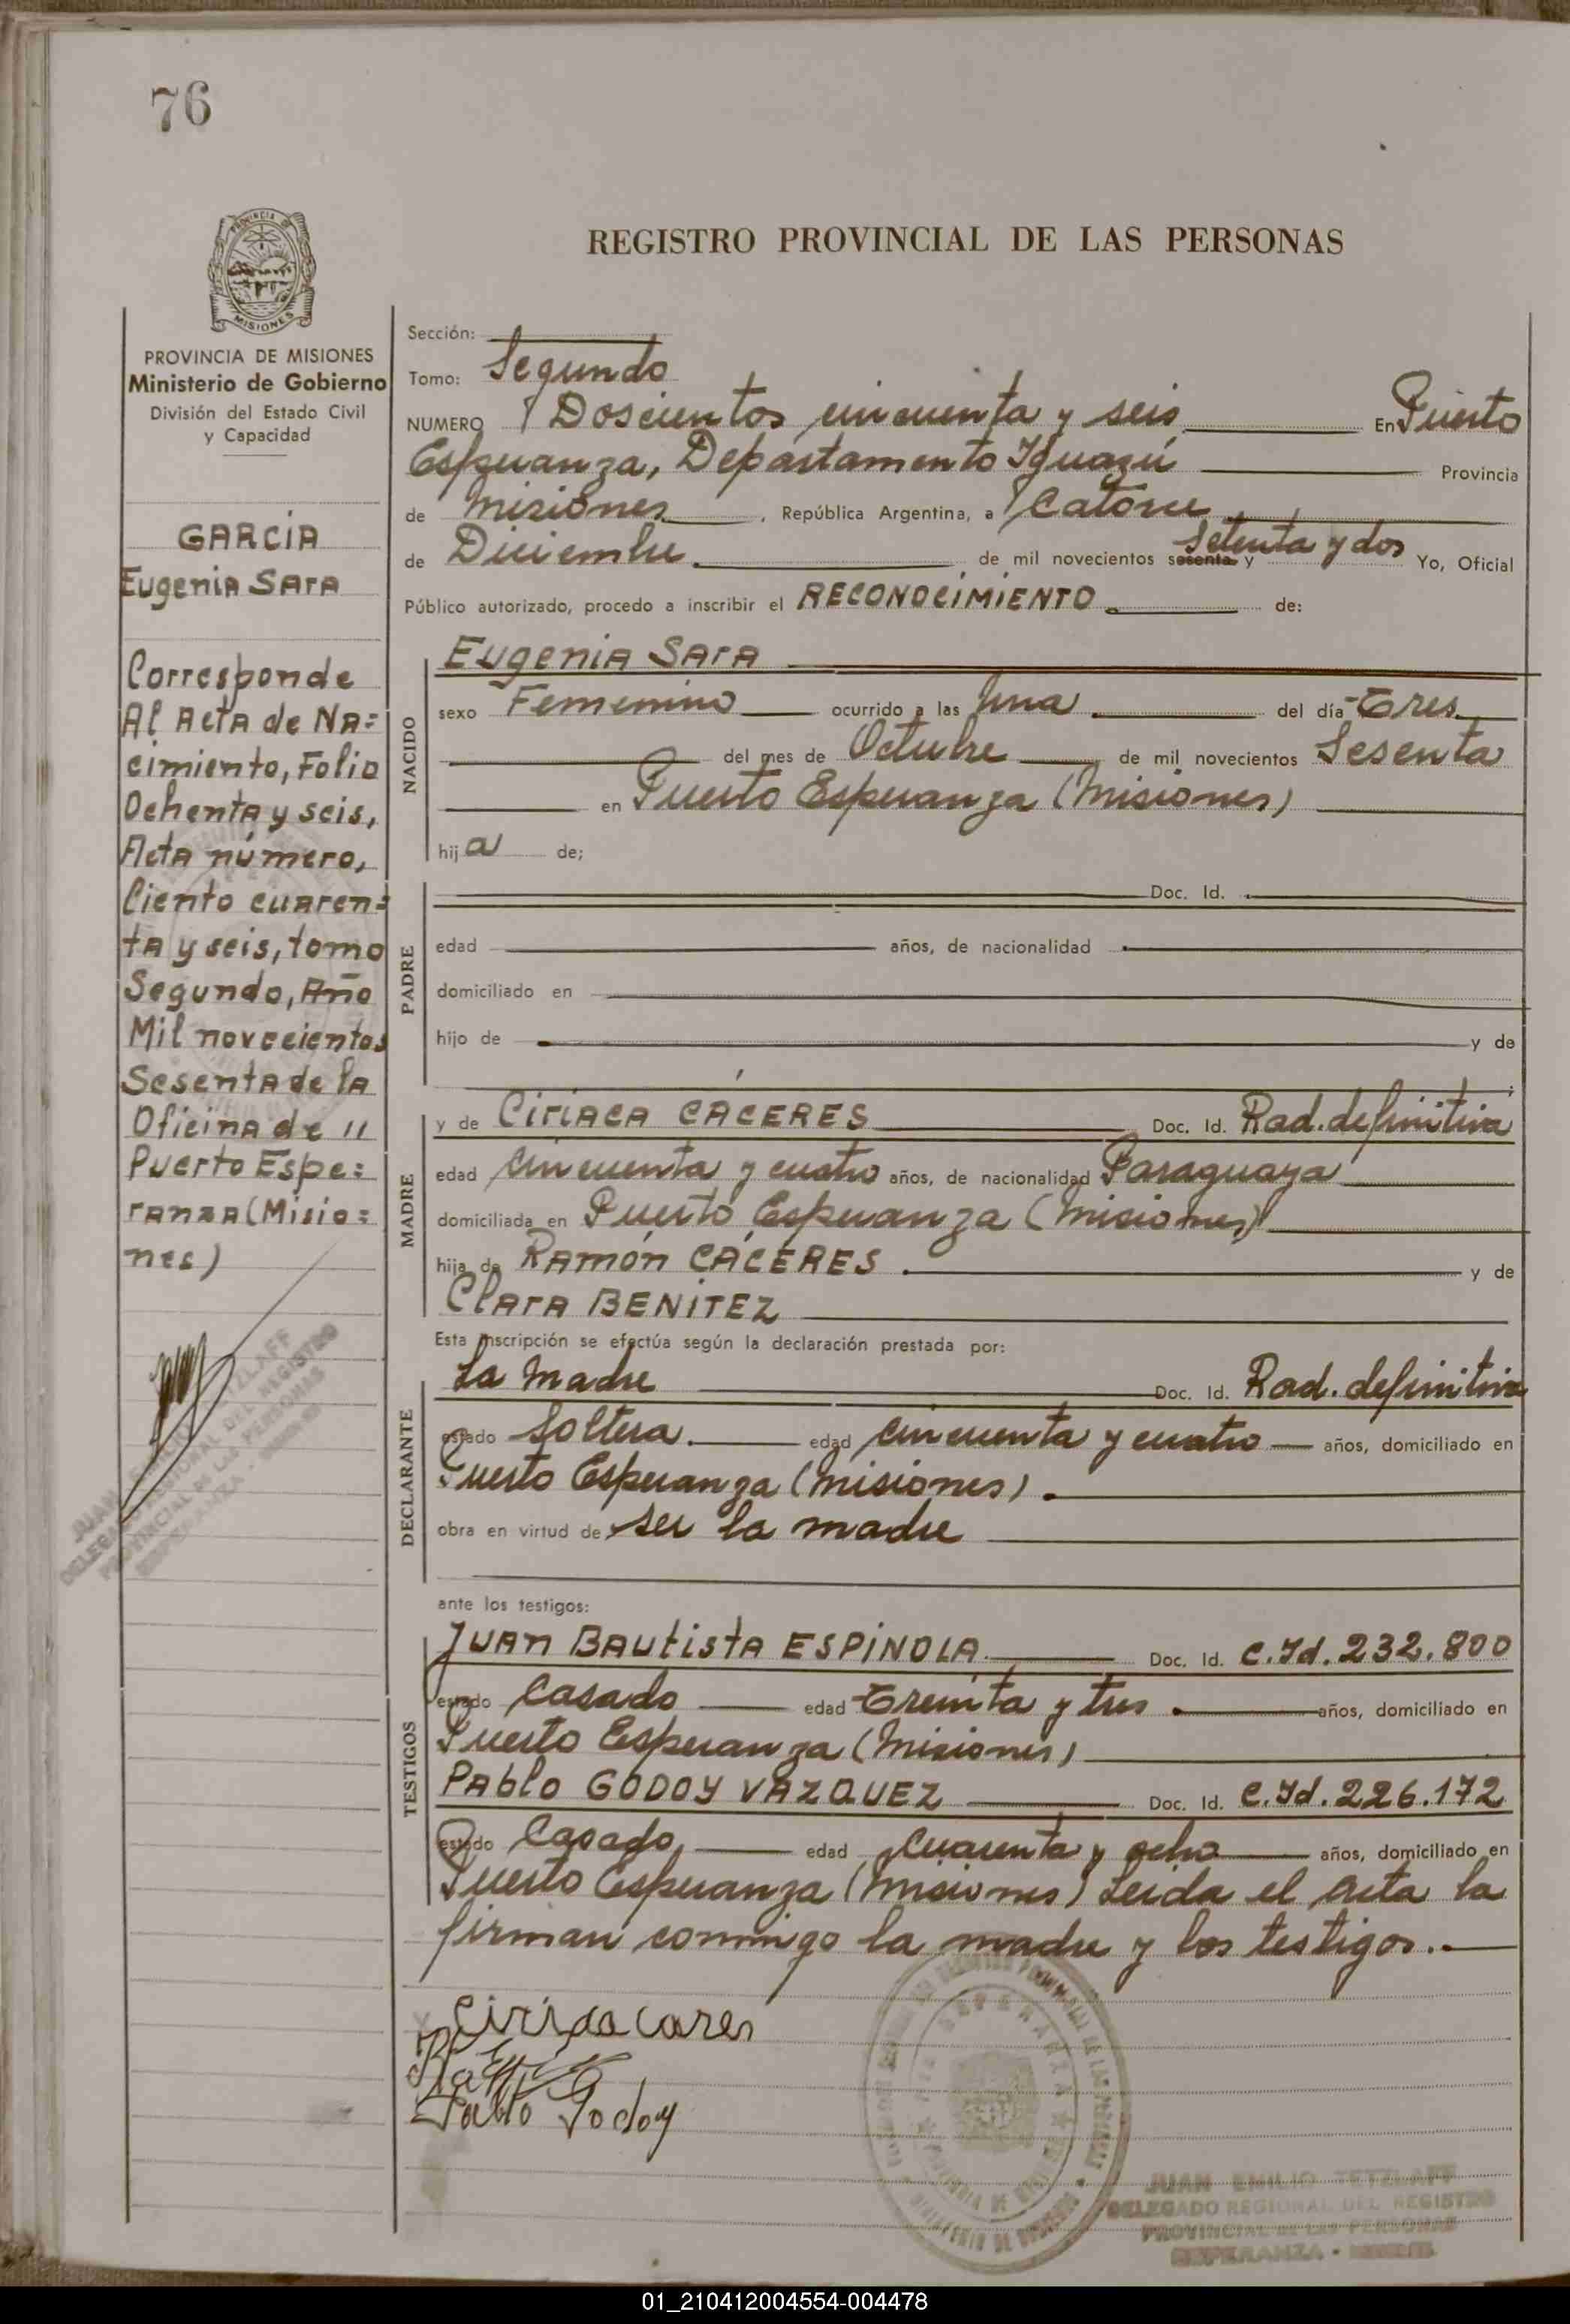 76
PROVINCIA DE
MISIONES
REGISTRO PROVINCIAL DE LAS PERSONAS
PROVINCIA DE MISIONES
Ministerio de Gobierno
División del Estado Civil
y Capacidad
GARCÍA
Eugenia Sara
Corresponde
Al Acta de Na=
cimiento, Folio
Ochenta y seis,
Acta número,
Ciento cuaren=
ta y seis, tomo
Segundo, Año
Mil novecientos
Sesenta de la
Oficina de "
Puerto Espe=
ranza (Misio=
nes)
Sección:
Tomo: Segundo
NUMERO Doscientos cincuenta y seis En Puerto
Esperanza, Departamento Iguazú Provincia
de Misiones, República Argentina, a Catorce
de Diciembre de mil novecientos sesenta y Setenta y dos Yo, Oficial
Público autorizado, procedo a inscribir el RECONOCIMIENTO de:
NACIDO
Eugenia Sara
sexo Femenino ocurrido a las Una del día Tres
del mes de Octubre de mil novecientos Sesenta
en Puerto Esperanza (Misiones)
hija de;
PADRE
Doc. Id.
edad años, de nacionalidad
domiciliado en
hijo de y de
MADRE
y de Ciriaca CÁCERES Doc. Id. Rad. definitiva
edad cincuenta y cuatro años, de nacionalidad Paraguaya
domiciliada en Puerto Esperanza (Misiones)
hija de Ramón CÁCERES y de
Clara BENÍTEZ
Esta inscripción se efectúa según la declaración prestada por:
DECLARANTE
La madre Doc. Id. Rad. definitiva
estado Soltera edad cincuenta y cuatro años, domiciliado en
Puerto Esperanza (Misiones)
obra en virtud de ser la madre
ante los testigos:
TESTIGOS
Juan Bautista ESPÍNOLA Doc. Id. C.Id. 232.800
estado Casado edad Treinta y tres años, domiciliado en
Puerto Esperanza (Misiones)
Pablo GODOY VAZQUEZ Doc. Id. C.Id. 226.172
estado Casado edad Cuarenta y ocho años, domiciliado en
Puerto Esperanza (Misiones) Leida el acta la
firman conmigo la madre y los testigos.
Pablo Godoy
JUAN EMILIO TETZLAFF
DELEGADO REGIONAL DEL REGISTRO
PROVINCIAL DE LAS PERSONAS
ESPERANZA - MISIONES
01_210412004554-004478